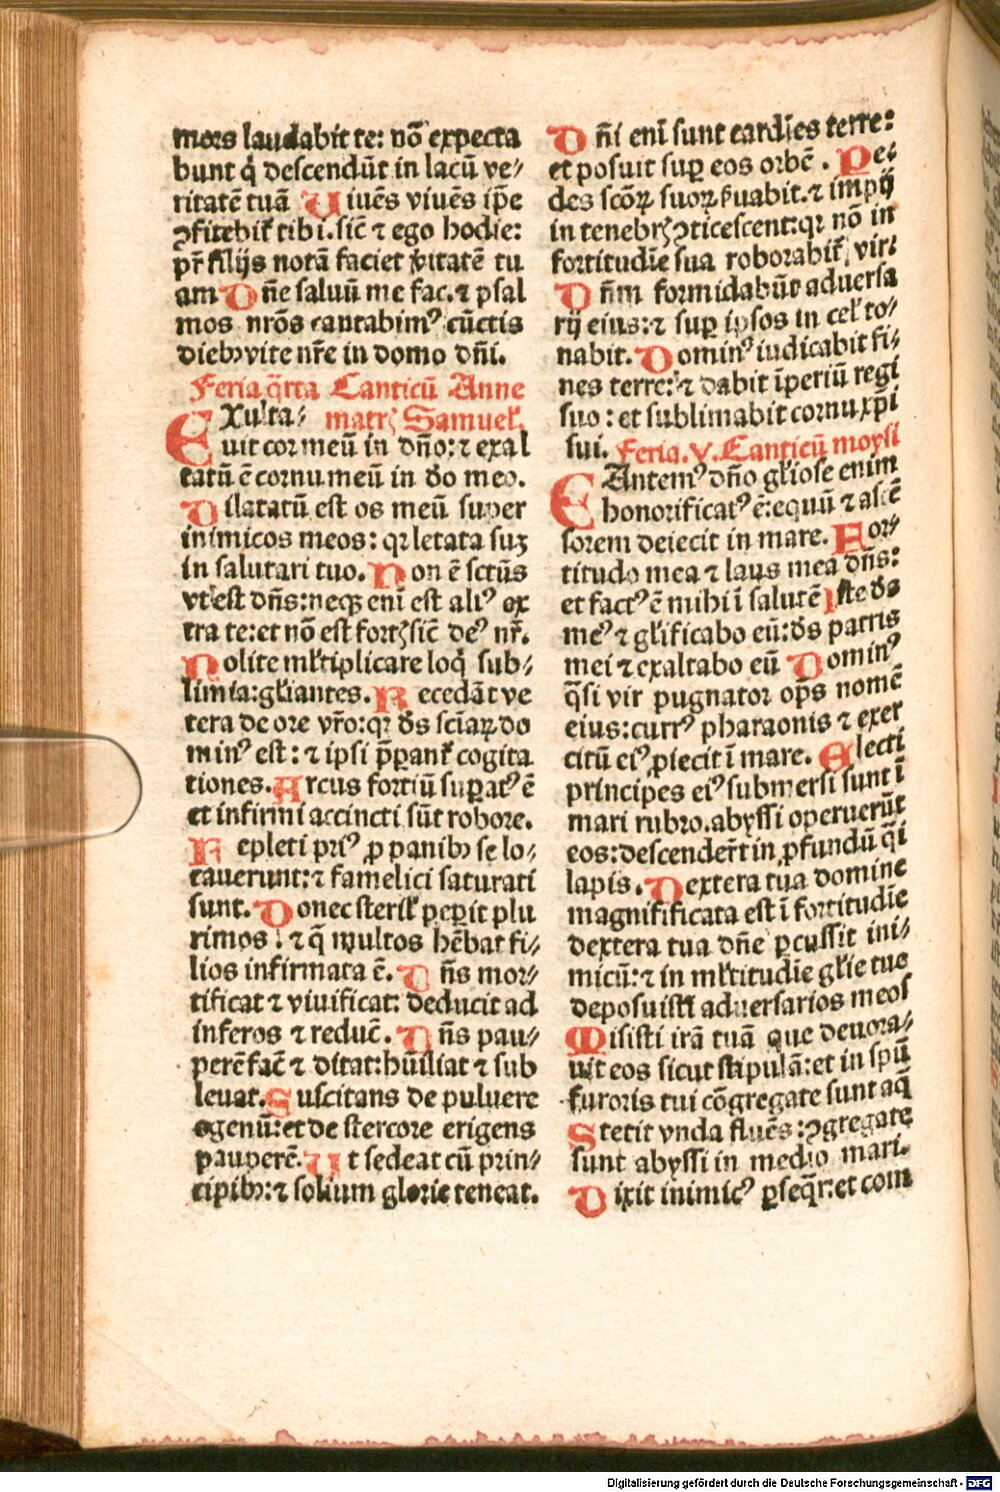 mors laudabit te: nō expecta
bunt q̇ descendūt in lacū ve⸗
ritatē tuā Uiuēs viuēs ip̄e
ꝯfitebit᷑ tibi. sic̄ ⁊ ego hodie:
pr̄ filijs notā faciet v̓itatē tu
am Dn̄e saluū me fac. ⁊ psal
mos nr̄os cantabimꝰ cūctis
diebꝫ vite nr̄e in domo dn̄i.
Feria q̄rta Canticū Anne
EXulta⸗ matrꝭ Samuel̓.
uit cor meū in dn̄o: ⁊ exal
tatū ē cornu meū in d̓o meo.
Dilatatū est os meū super
inimicos meos: qꝛ letata suꝫ
in salutari tuo. Non ē sctūs
vt est dn̄s: neqꝫ enī est aliꝰ ex
tra te: et nō est fortꝭ sic̄ deꝰ nr̄.
Nolite ml̓tiplicare loq̇ sub⸗
limia: gl̓iantes. Recedāt ve
tera de ore vr̄o: qꝛ d̓s sciaꝝ do
minꝰ est: ⁊ ipsi p̄panr̄ cogita
tiones. Arcus fortiū suꝑatꝰ ē
et infirmi accincti sūt robore.
Repleti priꝰ ꝓ panibꝫ se lo⸗
cauerunt: ⁊ famelici saturati
sunt. Donec steril̓ peꝑit plu
rimos: ⁊ q̄ multos hēbat fi⸗
lios infirmata ē. Dn̄s mor⸗
tificat ⁊ viuificat: deducit ad
inferos ⁊ reduc̄. Dn̄s pau⸗
perē fac̄ ⁊ ditat: hūiliat ⁊ sub
leuat. Suscitans de puluere
egenū: et de stercore erigens
pauperē. Ut sedeat cū prin⸗
cipibꝫ: ⁊ solium glorie teneat.
Dn̄i enī sunt cardīes terre:
et posuit suꝑ eos orbē. Pe⸗
des sc̄oꝝ suoꝝ ẜuabit. ⁊ impij
in tenebrꝭ ꝯticescent: qꝛ nō in
fortitudīe sua roborabit᷑ vir:
Dn̄m formidabūt aduersa
rij eius: ⁊ suꝑ ipsos in cel̓ to⸗
nabit. Dominꝰ iudicabit fi⸗
nes terre: ⁊ dabit īperiū regi
suo: et sublimabit cornu xp̄i
sui. Feria. v. Canticū moysi
CAntemꝰ dn̄o gl̓iose enim
honorificatꝰ ē: equū ⁊ ascē
sorem deiecit in mare. For⸗
titudo mea ⁊ laus mea dn̄s:
et factꝰ ē mihi ī salutē Iste d̓s
meꝰ ⁊ gl̓ificabo eū: d̓s patris
mei ⁊ exaltabo eū Dominꝰ
q̄si vir pugnator op̄s nomē
eius: currꝰ pharaonis ⁊ exer
citū eiꝰ ꝓiecit ī mare. Electi
principes eiꝰ submersi sunt ī
mari rubro. abyssi operuerūt
eos: descender̄t in ꝓfundū q̄i
lapis. Dextera tua domine
magnifificata est ī fortitudīe
dextera tua dn̄e ꝑcussit ini⸗
micū: ⁊ in ml̓titudīe gl̓ie tue
deposuisti aduersarios meos
Misisti irā tuā que deuora⸗
uit eos sicut stipulā: et in sp̄ū
furoris tui cōgregate sunt aq̄
Stetit vnda fluēs: ꝯgregate
sunt abyssi in medio mari.
Dixit inimicꝰ ꝑseq̄r: et com
Digitalisierung gefördert durch die Deutsche Forschungsgemeinschaft - DFG